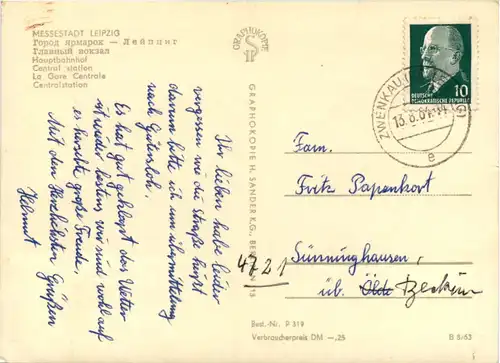 MESSESTADT LEIPZIG
Город ярмарок — Лейпциг
Главный вокзал
Hauptbahnhof
Central station
La Gare Centrale
Centralstation
Ihr lieben habe leider
vergessen wie die Straße heißt
darum bitte ich um übermittelung
nach Gütersloh.
Es hat gut geklappt das Wetter
ist wieder bestens wir sind wohlauf
es herrschte große Freude,
Mit den Herzlichsten Grüßen
Helmut
GRAPHOKOPIE
GRAPHOKOPIE H. SANDER KG., BERLIN
DEUTSCHE
DEMOKRATISCHE REPUBLIK
10
ZWENKAU
13.8.64-14
e
Fam.
Fritz Papenkort
4721
Sünninghausen,
üb. Oelde Beckum
Best.-Nr. P 319
Verbraucherpreis DM -,25
B 5/63